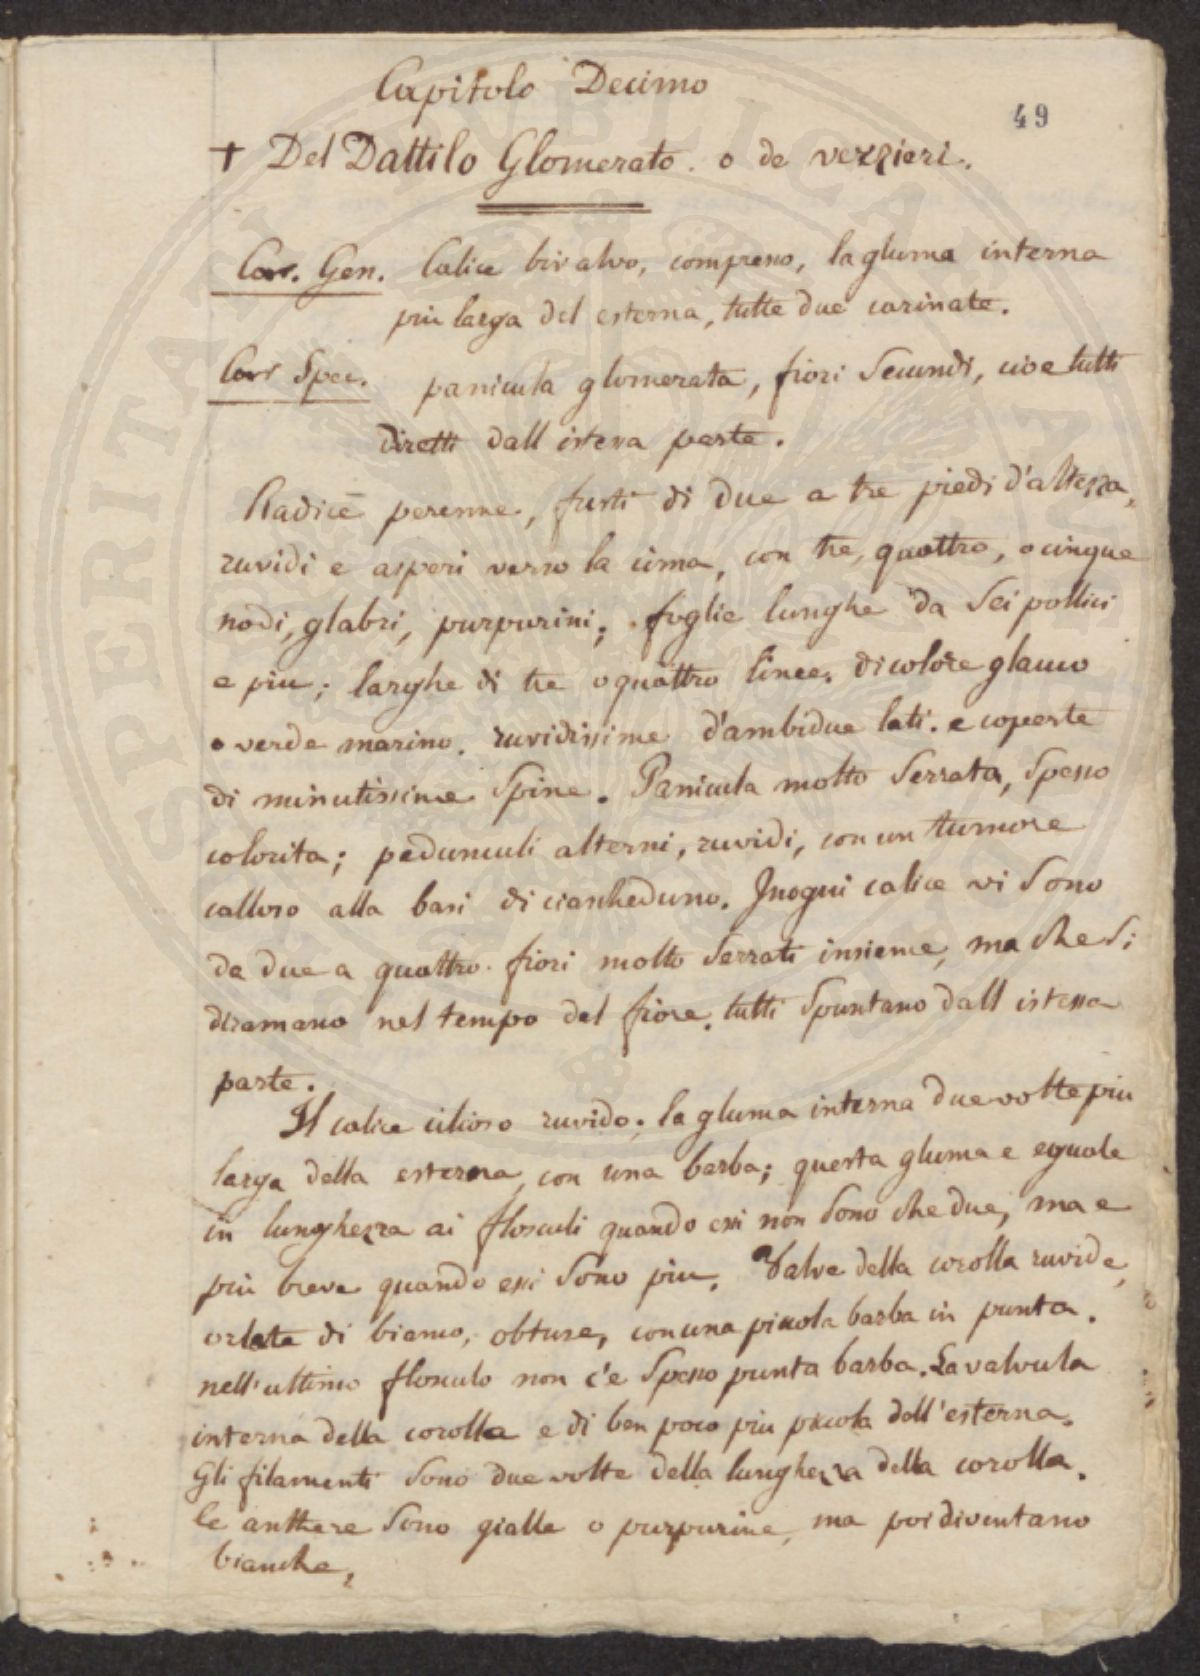 Capitolo Decimo
49
+ Del Dattilo Glomerato. o de verzieri.
Car. Gen. Calice bivalvo, compresso, la gluma interna
piu larga del esterna, tutte due carinate.
Car Spec. panicula glomerata, fiori Secundi, cioe tutti
diretti dall istessa parte.
Radice perenne, fusti di due a tre piedi d'altezza,
ruvidi e asperi verso la cima, con tre, quattro, o cinque
nodi, glabri, purpurini; foglie lunghe da Sei pollici
e piu; larghe di tre o quattro linee. di colore glauco
o verde marino. ruvidissime d'ambidue lati. e coperte
di minutissime Spine. Panicula molto Serrata, Spesso
colorita; pedunculi alterni, ruvidi, con un tumore
calloso alla basi di ciascheduno. Inogni calice vi Sono
da due a quattro fiori molto Serrati insieme, ma che Si
diramano nel tempo del fiore. tutti Spuntano dall istessa
parte.
Il calice cilioso ruvido; la gluma interna due volte piu
larga della esterna, con una barba; questa gluma e eguale
in lunghezza ai flosculi quando essi non Sono che due, ma e
piu breve quando essi Sono piu. Valve della corolla ruvide,
orlate di bianco, obtuse, con una piccola barba in punta.
nell'ultimo flosculo non c'e Spesso punta barba. La valvula
interna della corolla e di ben poco piu piccola dell'esterna.
Gli filamenti Sono due volte della lunghezza della corolla.
le anthere Sono gialle o purpurine, ma poi diventano
bianche,
SPERITATI PVBLICAE